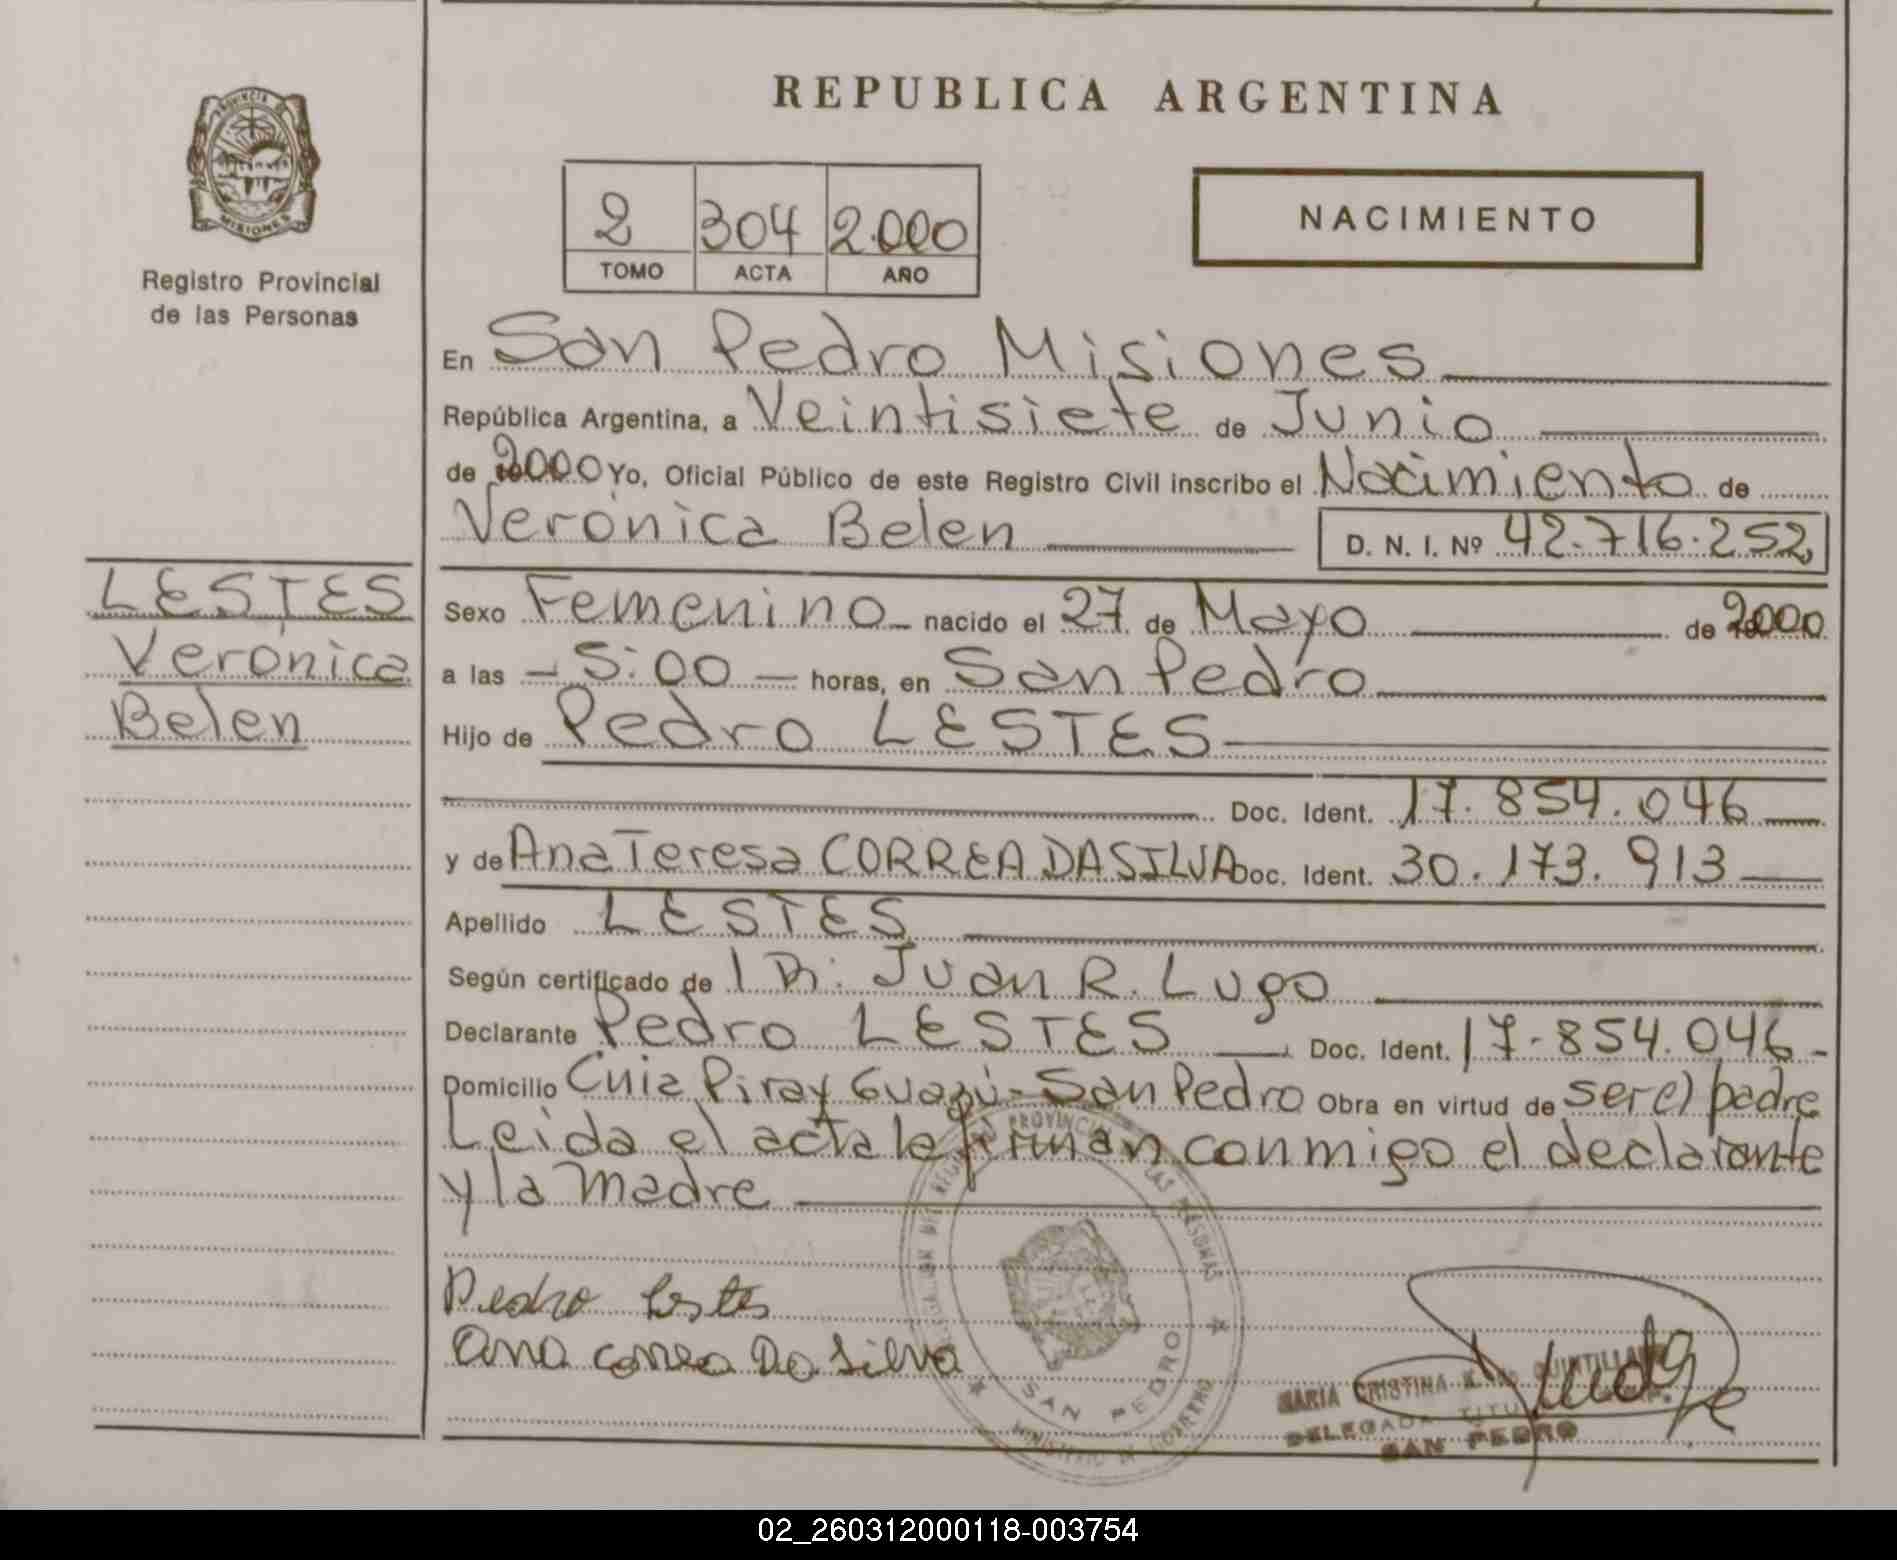 REPUBLICA ARGENTINA
PROVINCIA DE
MISIONES
Registro Provincial
de las Personas
2 304 2.000
TOMO ACTA AÑO
NACIMIENTO
En San Pedro Misiones
República Argentina, a Veintisiete de Junio
de 2000 Yo, Oficial Público de este Registro Civil inscribo el Nacimiento de
Verónica Belen D. N. I. Nº 42.716.252
LESTES
Verónica
Belen
Sexo Femenino nacido el 27 de Mayo de 2000
a las 5:00 horas, en San Pedro
Hijo de Pedro LESTES
Doc. Ident. 17.854.046
y de Ana Teresa CORREA DASILVA Doc. Ident. 30.173.913
Apellido LESTES
Según certificado de Juan R. Lugo
Declarante Pedro LESTES Doc. Ident. 17.854.046
Domicilio Piray Guazú - San Pedro Obra en virtud de ser el padre
Leida el acta la firman conmigo el declarante
y la madre
Pedro Lestes
Ana Correa Da Silva
PROVINCIA LAS PERSONAS
SAN PEDRO
MINISTERIO DE GOBIERNO
MARIA CRISTINA QUINTILLAN
DELEGADA TITULAR
SAN PEDRO
02_260312000118-003754